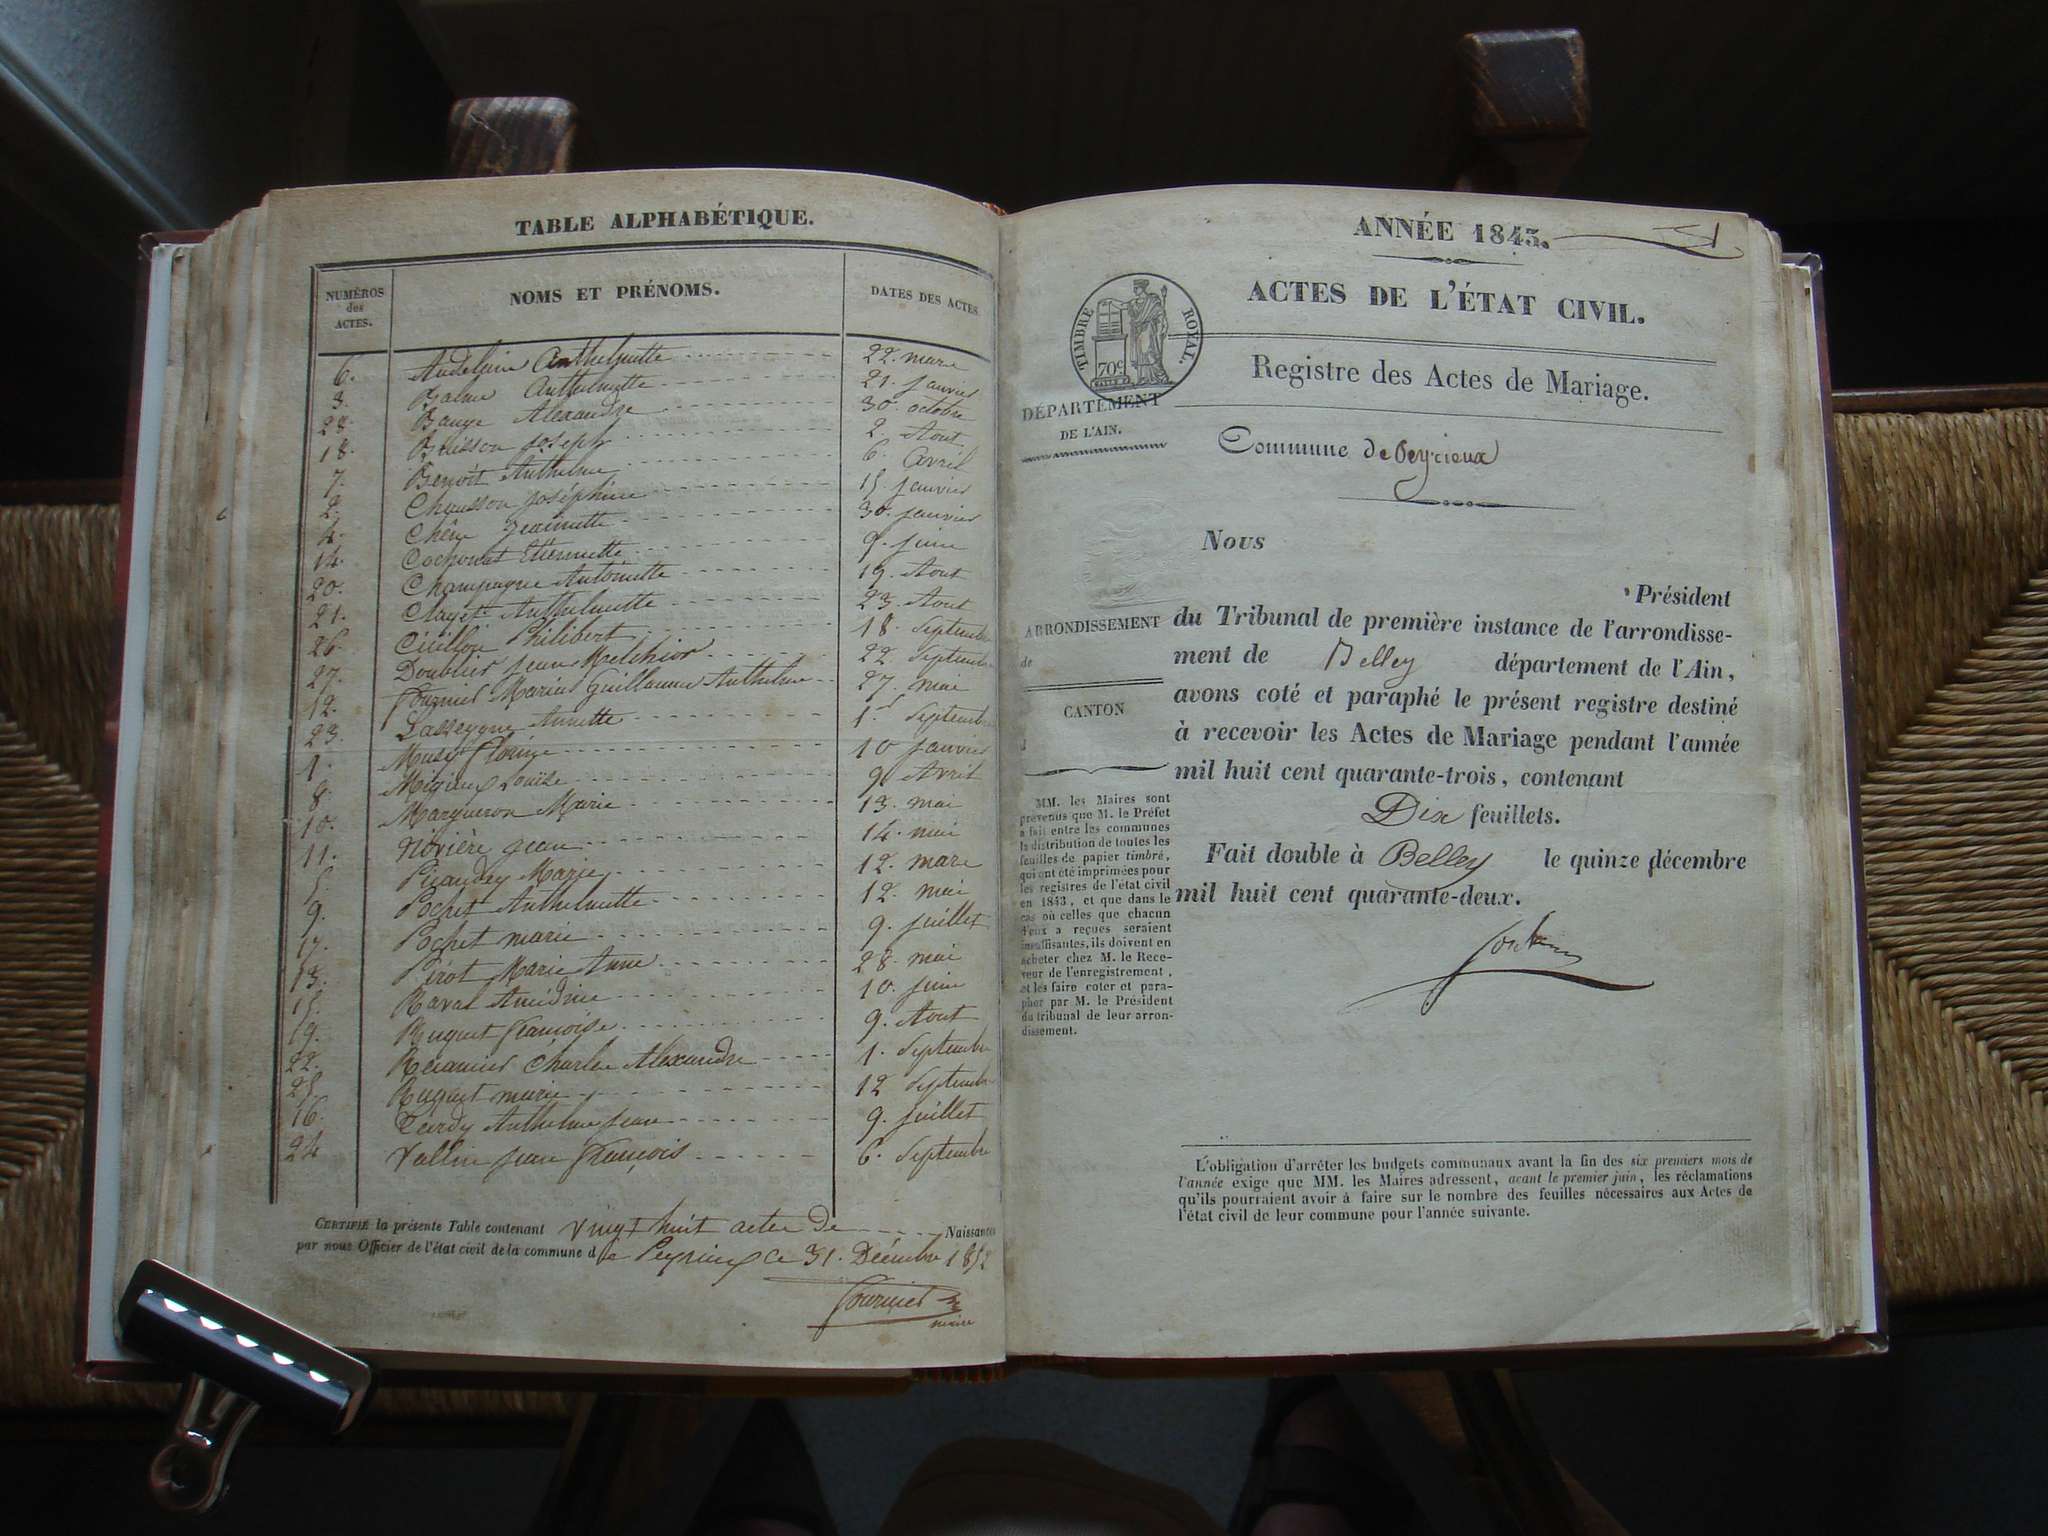 TABLE ALPHABÉTIQUE.
NUMÉROS
des
ACTES.
NOMS ET PRÉNOMS.
DATES DES ACTES
6. Anthelmette 22. mars
3. Balme Anthelmette 21. janvier
28. Bauge Alexandre 30. octobre
18. Buisson Joseph 2. Aout
7. Benoit Anthelme 6. avril
2. Chausson Joséphine 15. janvier
4. Chêne Jeannette 30. janvier
14. Cochonat Etiennette 9. juin
20. Champagne Antoinette 19. Aout
21. Clayet Anthelmette 23. Aout
26. Philibert 18. Septembre
27. Doublier Jean Melchior 22. Septembre
12. Fournier Marius Guillaume Anthelme 27. mai
23. Annette 1er Septembre
1. 10 janvier
8. Migieux Louise 9. Avril
10. Margueron Marie 13. mai
11. Rivière Jean 14. mai
5. Marie 12. mars
9. Pochet Anthelmette 12. mai
17. Pochet marie 9. juillet
13. Pirot Marie Anne 28. mai
15. Ravat 10. juin
19. Ruguet Françoise 9. Aout
22. Charles Alexandre 1. Septembre
25. Ruguet marie 12 Septembre
16. Tardy Anthelme Jean 9. juillet
24 Vallin Jean François 6. Septembre
CERTIFIE la présente Table contenant vingt huit actes de Naissances
par nous Officier de l'état civil de la commune de Peyrieux ce 31. Décembre 1852
Fournier
maire
ANNÉE 1843.
ACTES DE L'ÉTAT CIVIL.
TIMBRE ROYAL.
70c
Registre des Actes de Mariage.
DÉPARTEMENT
DE L'AIN.
Commune de Peyrieux
Nous
Président
ARRONDISSEMENT
de
du Tribunal de première instance de l'arrondisse-
ment de Belley département de l'Ain,
CANTON
avons coté et paraphé le présent registre destiné
à recevoir les Actes de Mariage pendant l'année
mil huit cent quarante-trois, contenant
Dix feuillets.
Fait double à Belley le quinze décembre
mil huit cent quarante-deux.
MM. les Maires sont
prévenus que M. le Préfet
a fait entre les communes
la distribution de toutes les
feuilles de papier timbré,
qui ont été imprimées pour
les registres de l'état civil
en 1843, et que dans le
cas où celles que chacun
d'eux a reçues seraient
insuffisantes, ils doivent en
acheter chez M. le Rece-
veur de l'enregistrement,
et les faire coter et para-
pher par M. le Président
du tribunal de leur arron-
dissement.
L'obligation d'arrêter les budgets communaux avant la fin des six premiers mois de
l'année exige que MM. les Maires adressent, avant le premier juin, les réclamations
qu'ils pourraient avoir à faire sur le nombre des feuilles nécessaires aux Actes de
l'état civil de leur commune pour l'année suivante.